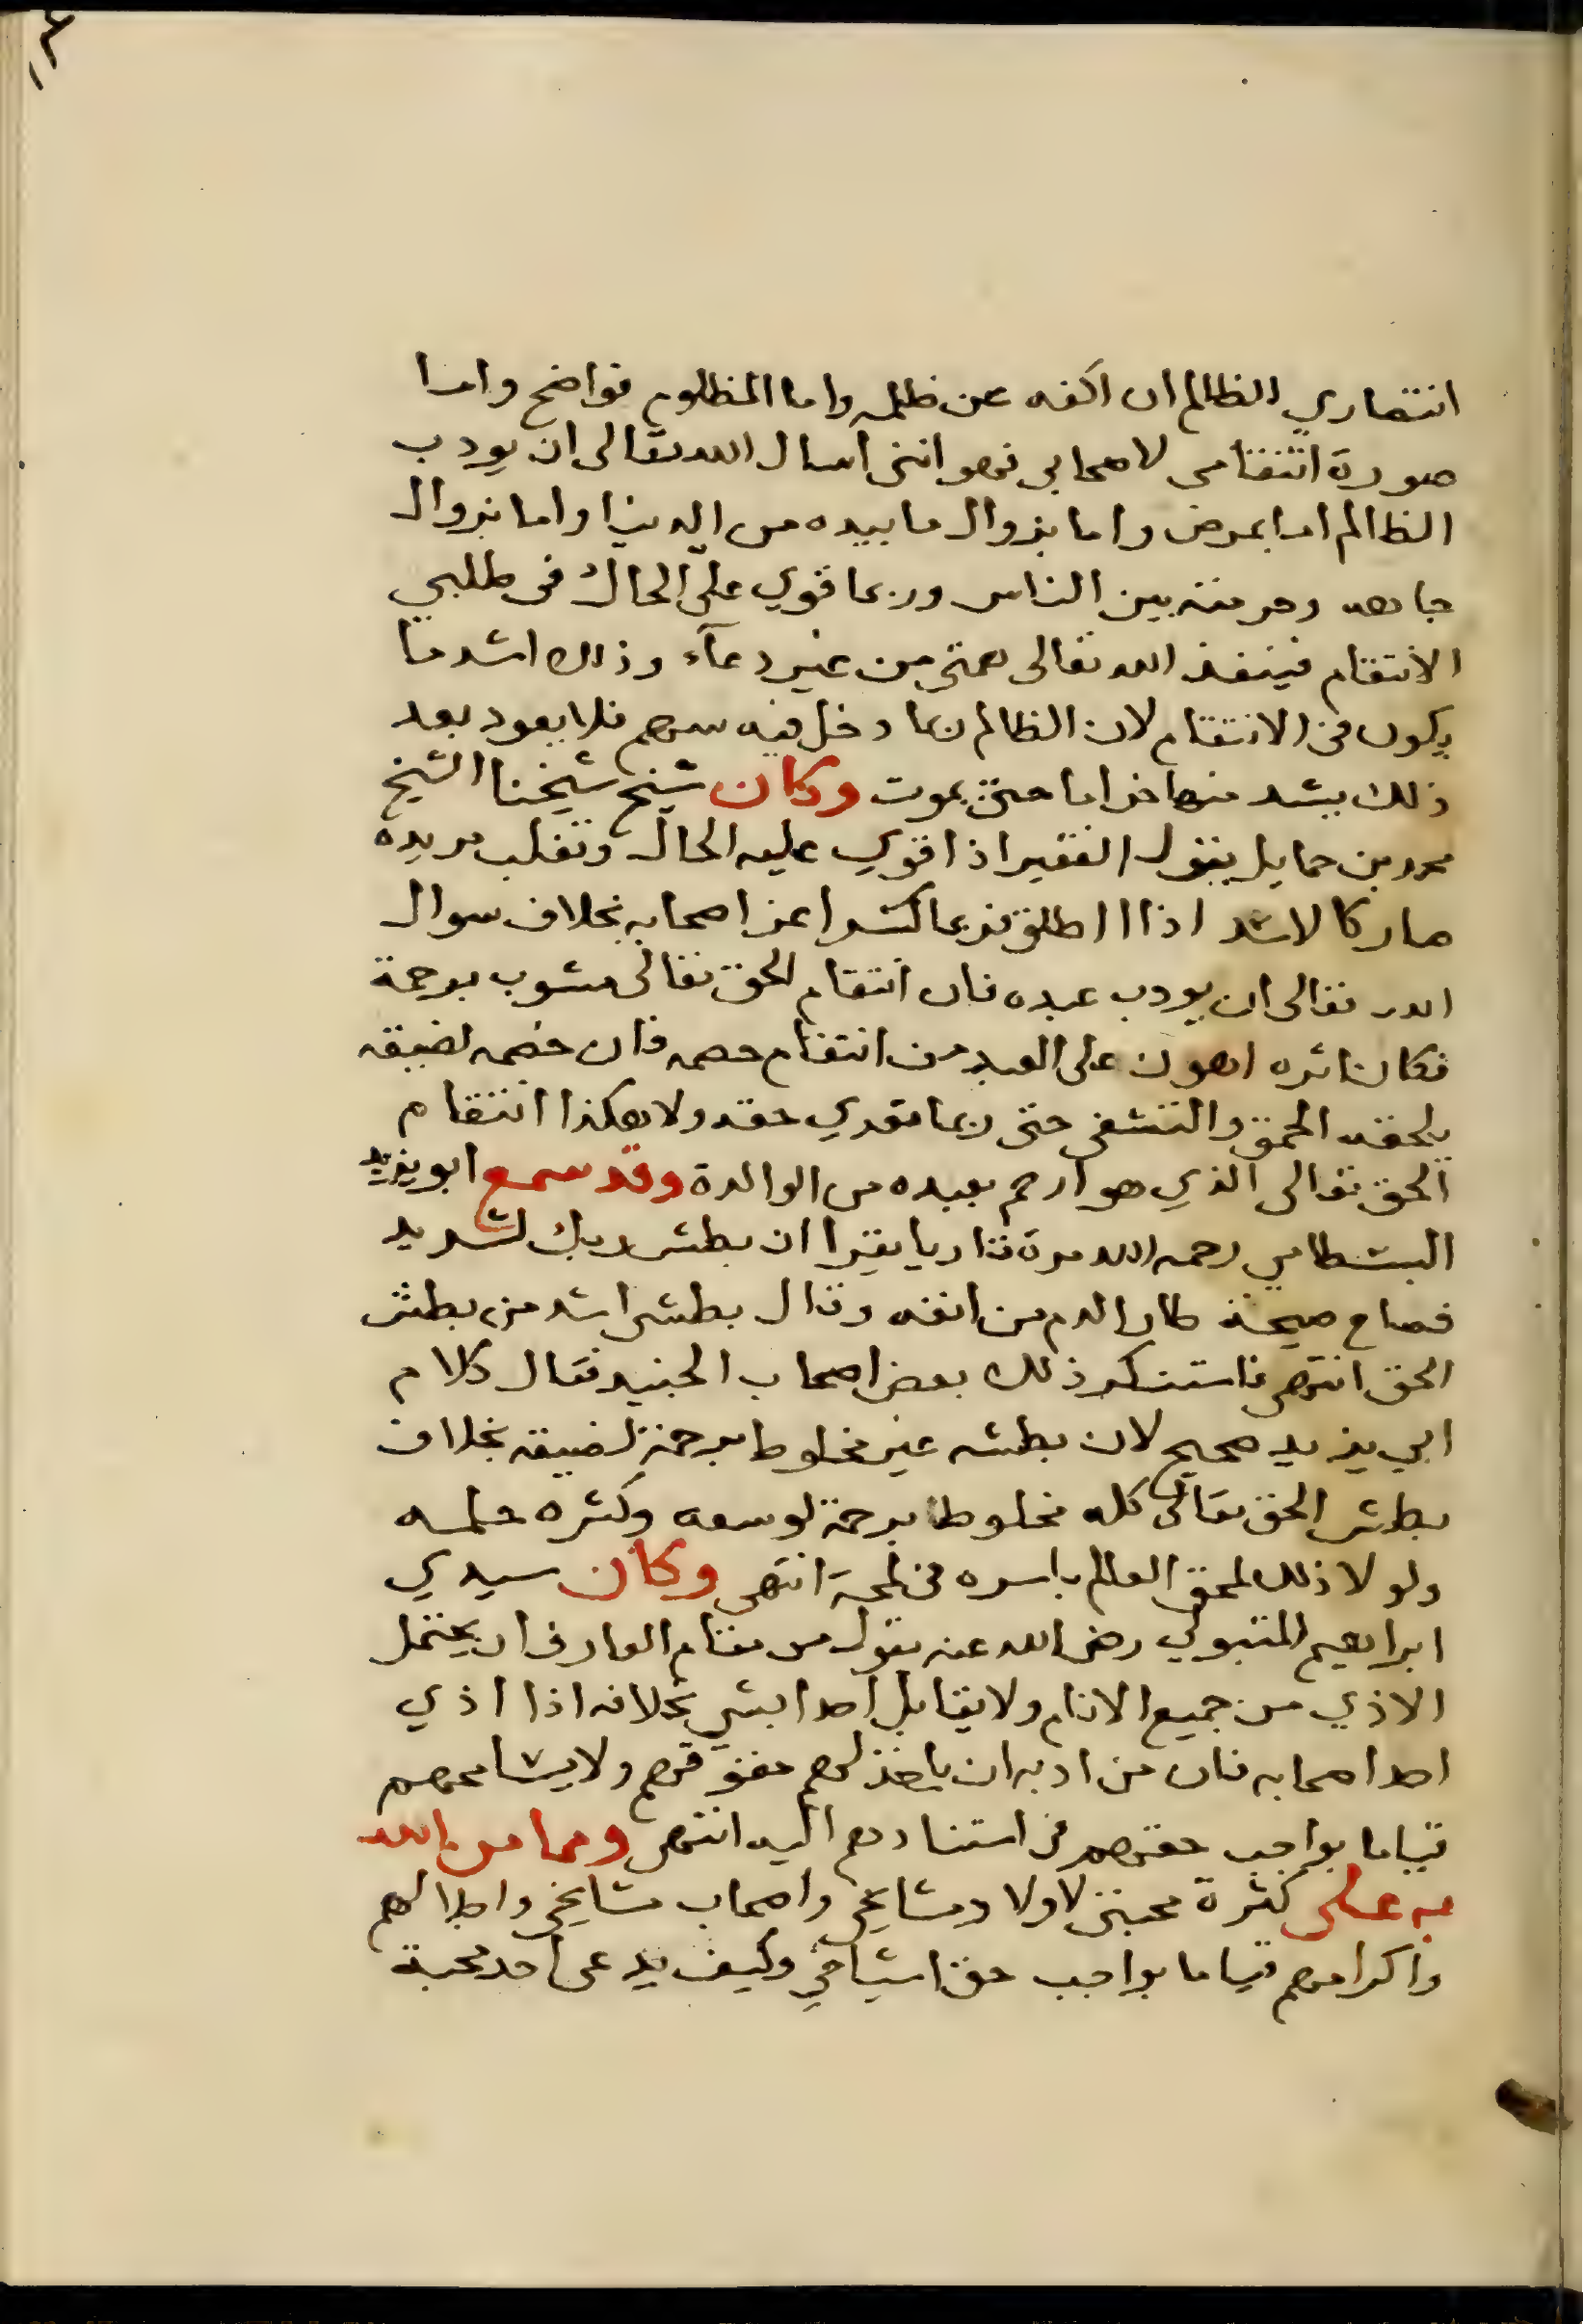 انتصاري للظالم ان اكفه عن ظلمه واما المظلوم فواضح واما
صورة انتقامى لاصحابى فهو اننى اسال الله تعالى ان يودب
الظالم اما بمرض واما بزوال ما بيده من الدنيا واما بزوال
جاهه وحرمته بين الناس وربما قوي علي الحال فى طلبي
الانتقام فينفذ الله تعالى همتى من غير دعآء وذلك اشد ما
يكون فى الانتقام لان الظالم ربما دخل فيه سهم فلا يعود بعد
ذلك يشد منها حزاما حتى يموت وكان شيخ شيخنا الشيخ
محمد بن حمايل يقول الفقير اذا قوي عليه الحال وتغلب مريده
صار كالاسد اذا اطلق فربما كسر اعز اصحابه بخلاف سوال
الله تعالى ان يودب عبده فان انتقام الحق تعالى مشوب برحمة
فكان اثره اهون على العبد من انتقام خصمه فان خصمه لضيقه
يلحقه الحمق والتشفى حتى ربما تعدي حقه ولا هكذا انتقام
الحق تعالى الذي هو ارحم بعبده من الوالدة وقد سمع ابو يزيد
البسطامي رحمه الله مرة قاريا يقرا ان بطش ربك لشديد
فصاح صيحة طار الدم من انفه وقال بطشى اشد من بطش
الحق انتهى فاستنكر ذلك بعض اصحاب الجنيد فقال كلام
ابي يزيد صحيح لان بطشه غير مخلوط برحمة لضيقه بخلاف
بطش الحق تعالى كله مخلوط برحمة لوسعه وكثره حلمه
ولو لا ذلك لمحق العالم باسره فى لمحة انتهى وكان سيدي
ابراهيم المتبولي رضى الله عنه يقول من مقام العارف ان يحتمل
الاذي من جميع الانام ولا يقابل احدا بشي بخلافه اذا اذي
احد اصحابه فان من ادبه ان ياخذ لهم حقوقهم ولا يسامحهم
قياما بواجب حقهم فى استنادهم اليه انتهى ومما من الله
به على كثرة محبتى لاولاد مشايخى واصحاب مشايخى واجلالهم
واكرامهم قياما بواجب حق اشياخى وكيف يدعى احد محبة